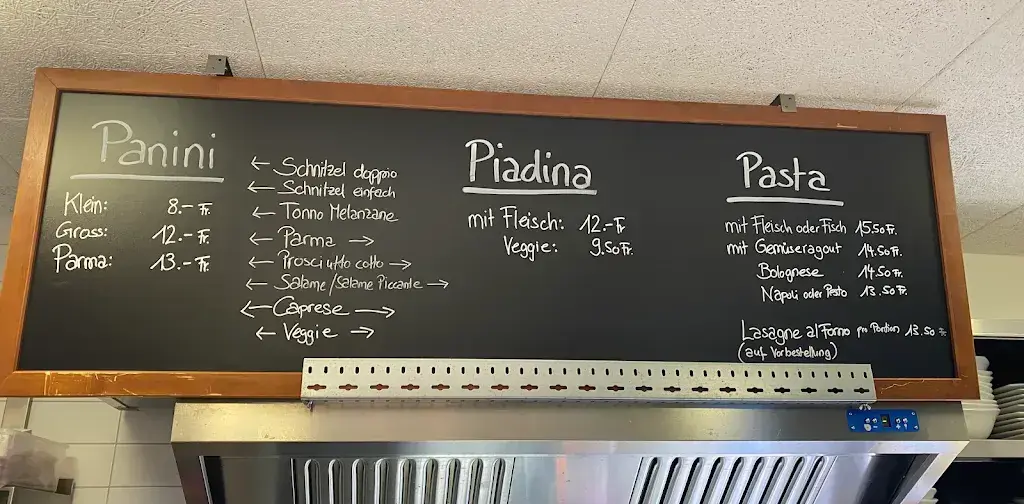 Panini
Klein: 8.- Fr.
Gross: 12.- Fr.
Parma: 13.- Fr.
← Schnitzel doppio
← Schnitzel einfach
← Tonno Melanzane
← Parma →
← Prosciutto cotto →
← Salame/Salame Piccante →
← Caprese →
← Veggie →
Piadina
mit Fleisch: 12.- Fr
Veggie: 9.50 Fr.
Pasta
mit Fleisch oder Fisch 15.50 Fr.
mit Gemüseragout 14.50 Fr.
Bolognese 14.50 Fr.
Napoli oder Pesto 13.50 Fr.
Lasagne al Forno pro Portion 13.50 Fr.
(auf Vorbestellung)